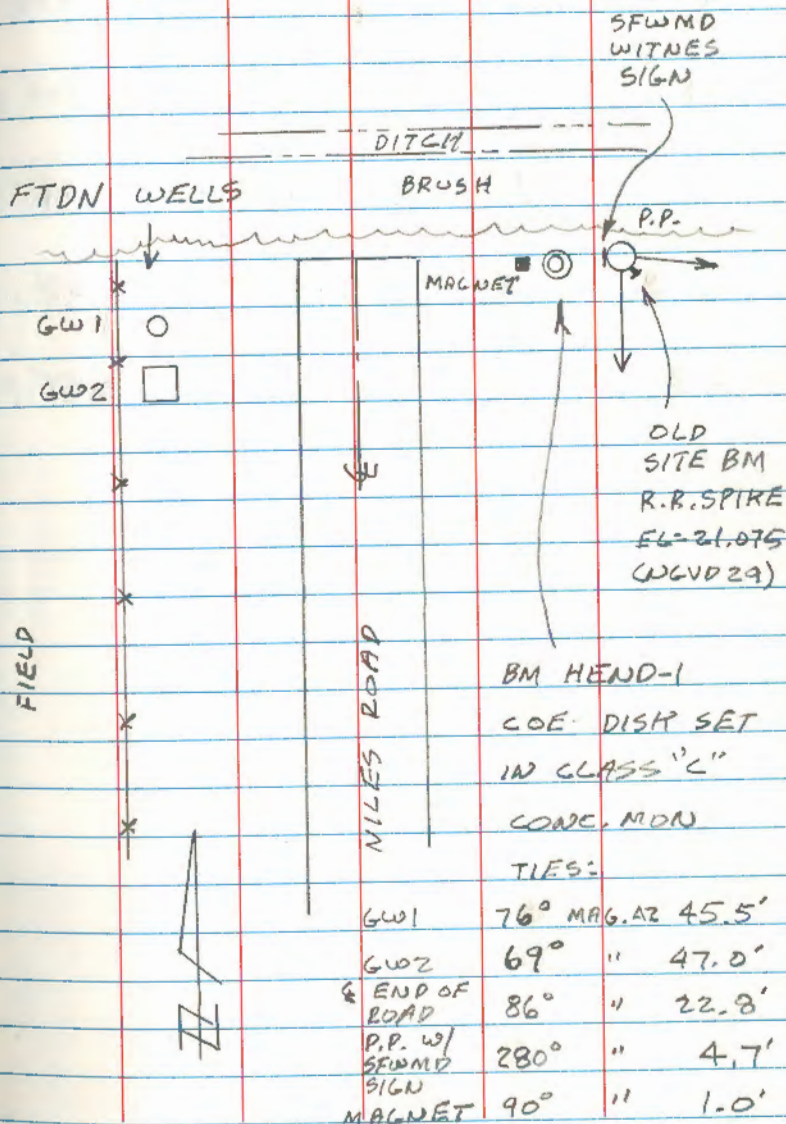 SFWMD
WITNES
SIGN
DITCH
FTDN WELLS
BRUSH
P.P.
MAGNET
GW1
GW2
℄
OLD
SITE BM
R.R. SPIKE
EL=21.075
(NGVD 29)
FIELD
NILES ROAD
BM HEND-1
COE DISK SET
IN CLASS "C"
CONC. MON
TIES:
N
GW1 76° MAG. AZ 45.5'
GW2 69° " 47.0'
℄ END OF
ROAD 86° " 22.8'
P.P. W/
SFWMD 280° " 4.7'
SIGN
MAGNET 90° " 1.0'